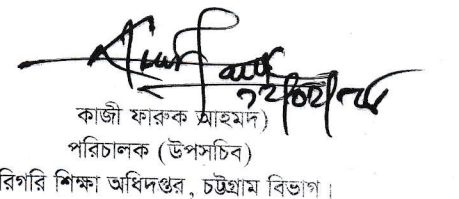 কাজী ফারুক আহমদ)
পরিচালক (উপসচিব)
রিগরি শিক্ষা অধিদপ্তর, চট্টগ্রাম বিভাগ।